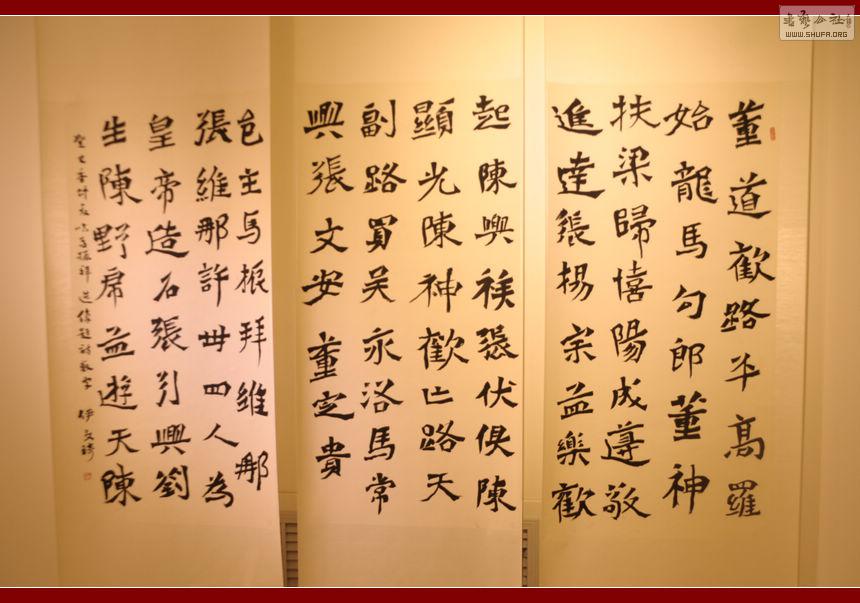 董道歡路平高羅
始龍馬勾郎董神
扶梁歸憘陽成遵敬
進達張楊宗益樂歡
起陳興族張伏俱陳
顯光陳神歡亡路天
副路買吴永洛馬常
興張文安董定貴
邑主馬振拜維那
張維那許丗四人為
皇帝造石張引興劉
生陳野席益遊天陳
造像題
伊
WWW.SHUFA.ORG